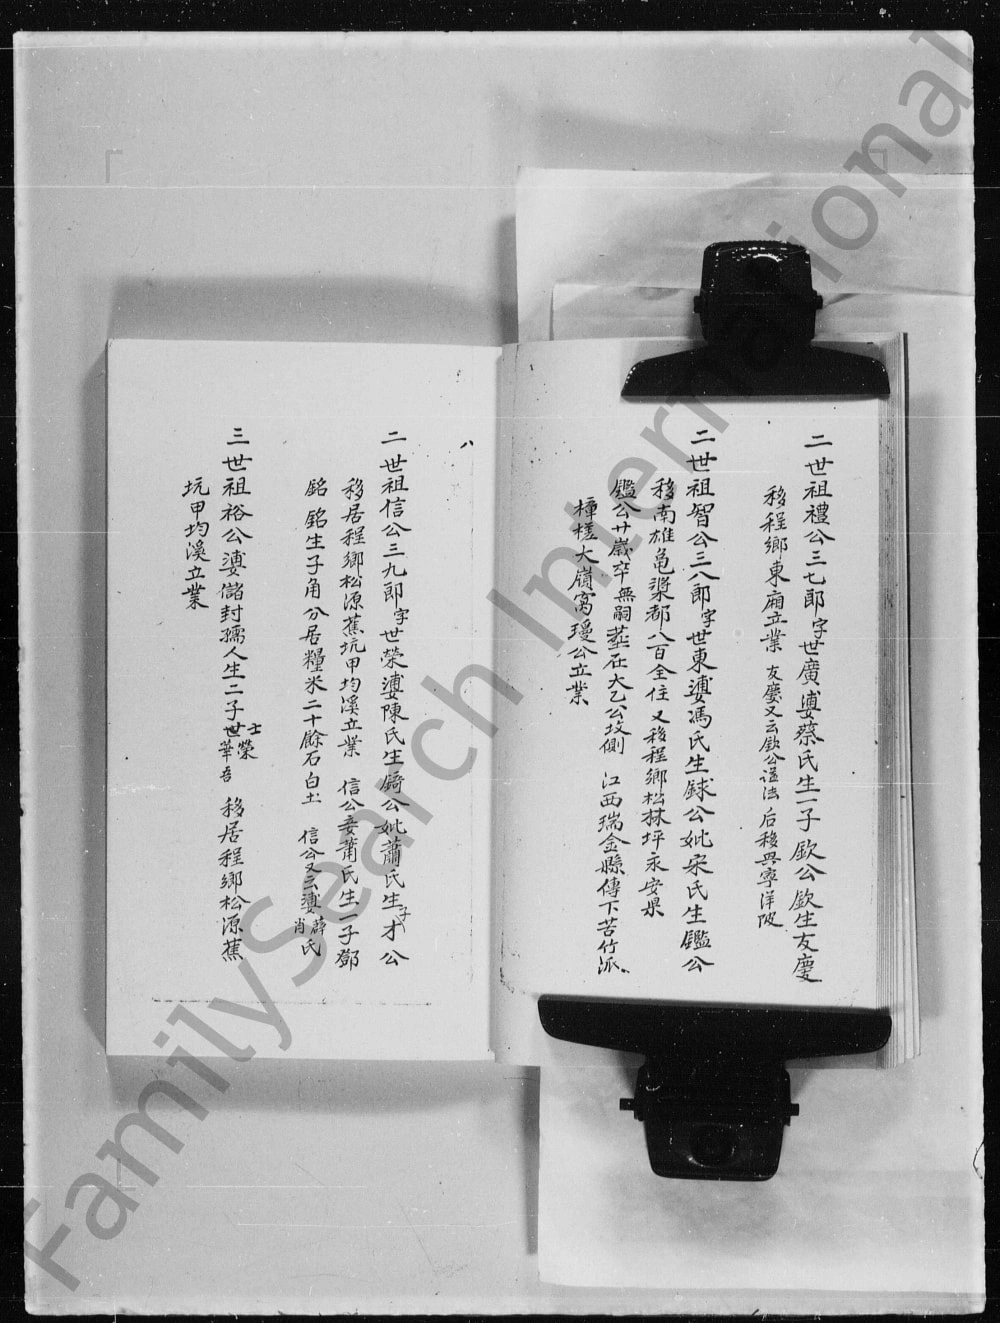 二世祖禮公三七郎字世廣婆蔡氏生一子欽公欽生友慶
移程鄉東廂立業 友慶又云欽公謚法 后移興寧洋陂
二世祖智公三八郎字世東婆馮氏生銶公妣宋氏生鑑公
移南雄 都八百全住 又移程鄉松林坪永安
鑑公廿歲卒無嗣塟在大乙公坟側 江西瑞金縣傳下苦竹派
大嶺窩 公立業
八
二世祖信公三九郎字世榮婆陳氏生錡公妣蕭氏生子才公
移居程鄉松源蕉坑甲均溪立業 信公妾蕭氏生一子鄧
銘 銘生子角 分居糧米二十餘石白土 信公又云婆薛肖氏
三世祖裕公婆儲封孺人生二子世士榮華吾 移居程鄉松源蕉
坑甲均溪立業
FamilySearch International